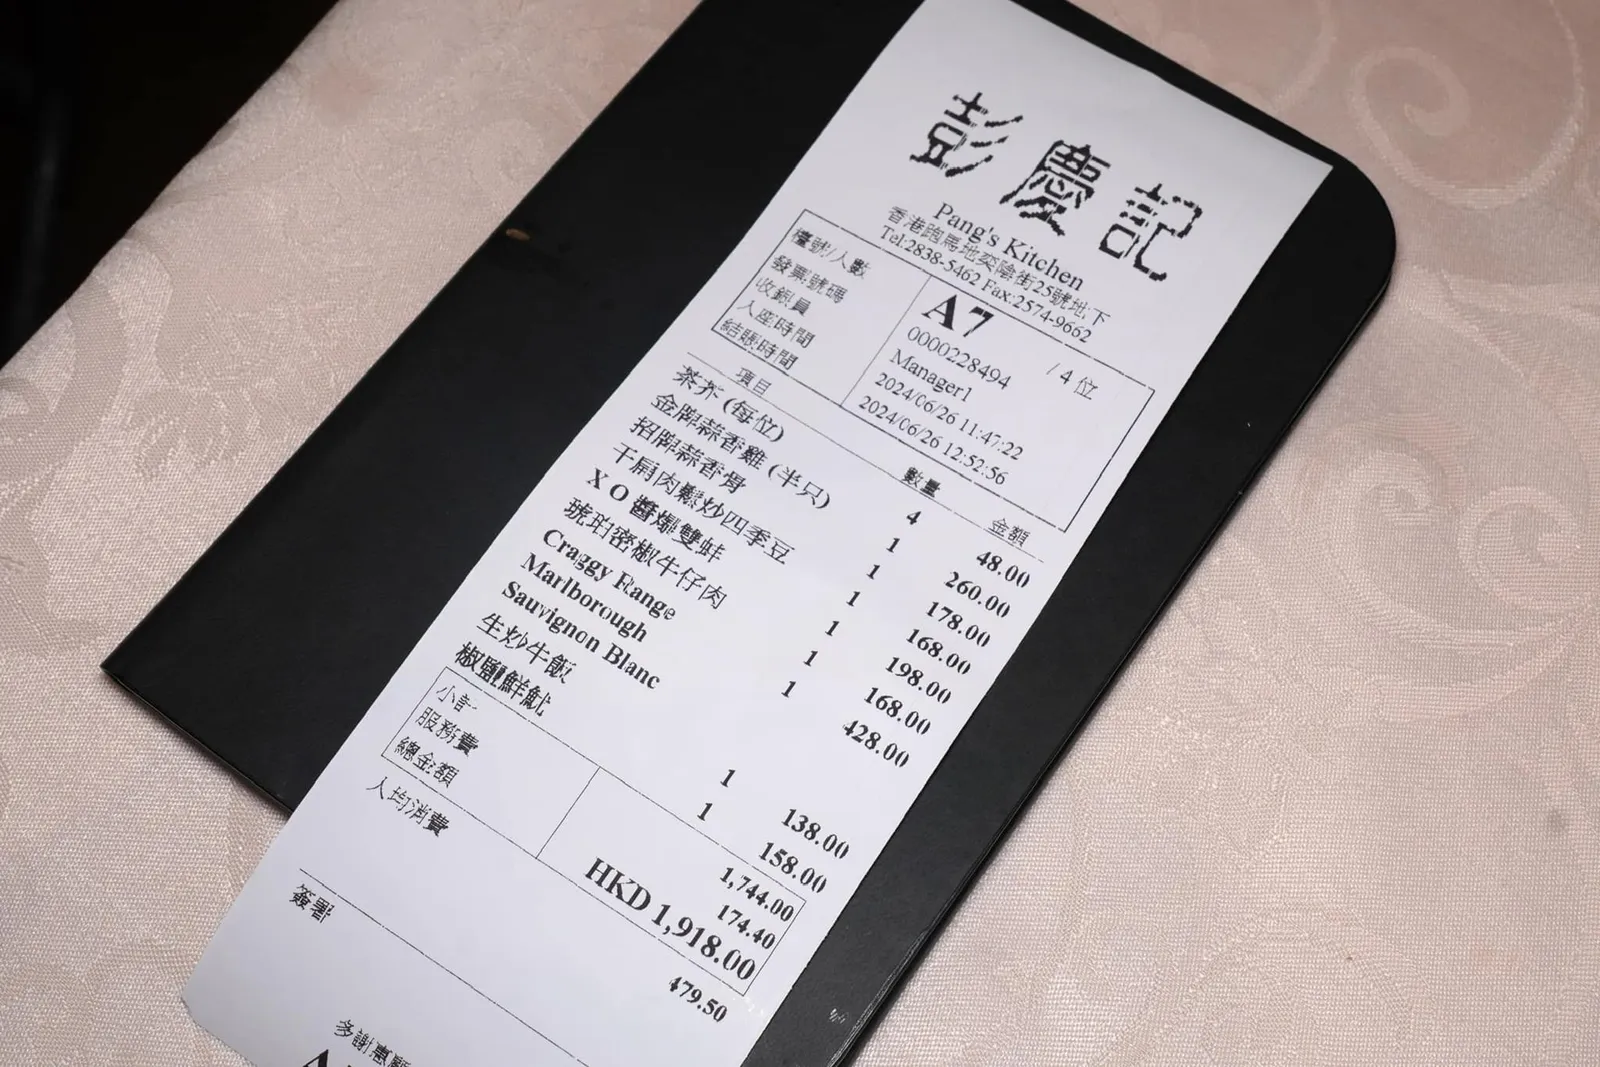 彭慶記
Pang's Kitchen
香港跑馬地奕蔭街25號地下
Tel:2838-5462 Fax:2574-9662
檯號/人數 A7 / 4 位
發票號碼 0000228494
收銀員 Manager1
入座時間 2024/06/26 11:47:22
結賬時間 2024/06/26 12:52:56
項目 數量 金額
茶芥 (每位) 4 48.00
金牌蒜香雞 (半只) 1 260.00
招牌蒜香骨 1 178.00
干扁肉鬆炒四季豆 1 168.00
X O 醬爆雙蚌 1 198.00
琥珀密椒牛仔肉 1 168.00
Craggy Range 1 428.00
Marlborough
Sauvignon Blanc
生炒牛飯 1 138.00
椒鹽鮮魷 1 158.00
小計 1,744.00
服務費 174.40
總金額 HKD 1,918.00
人均消費 479.50
簽署
多謝惠顧